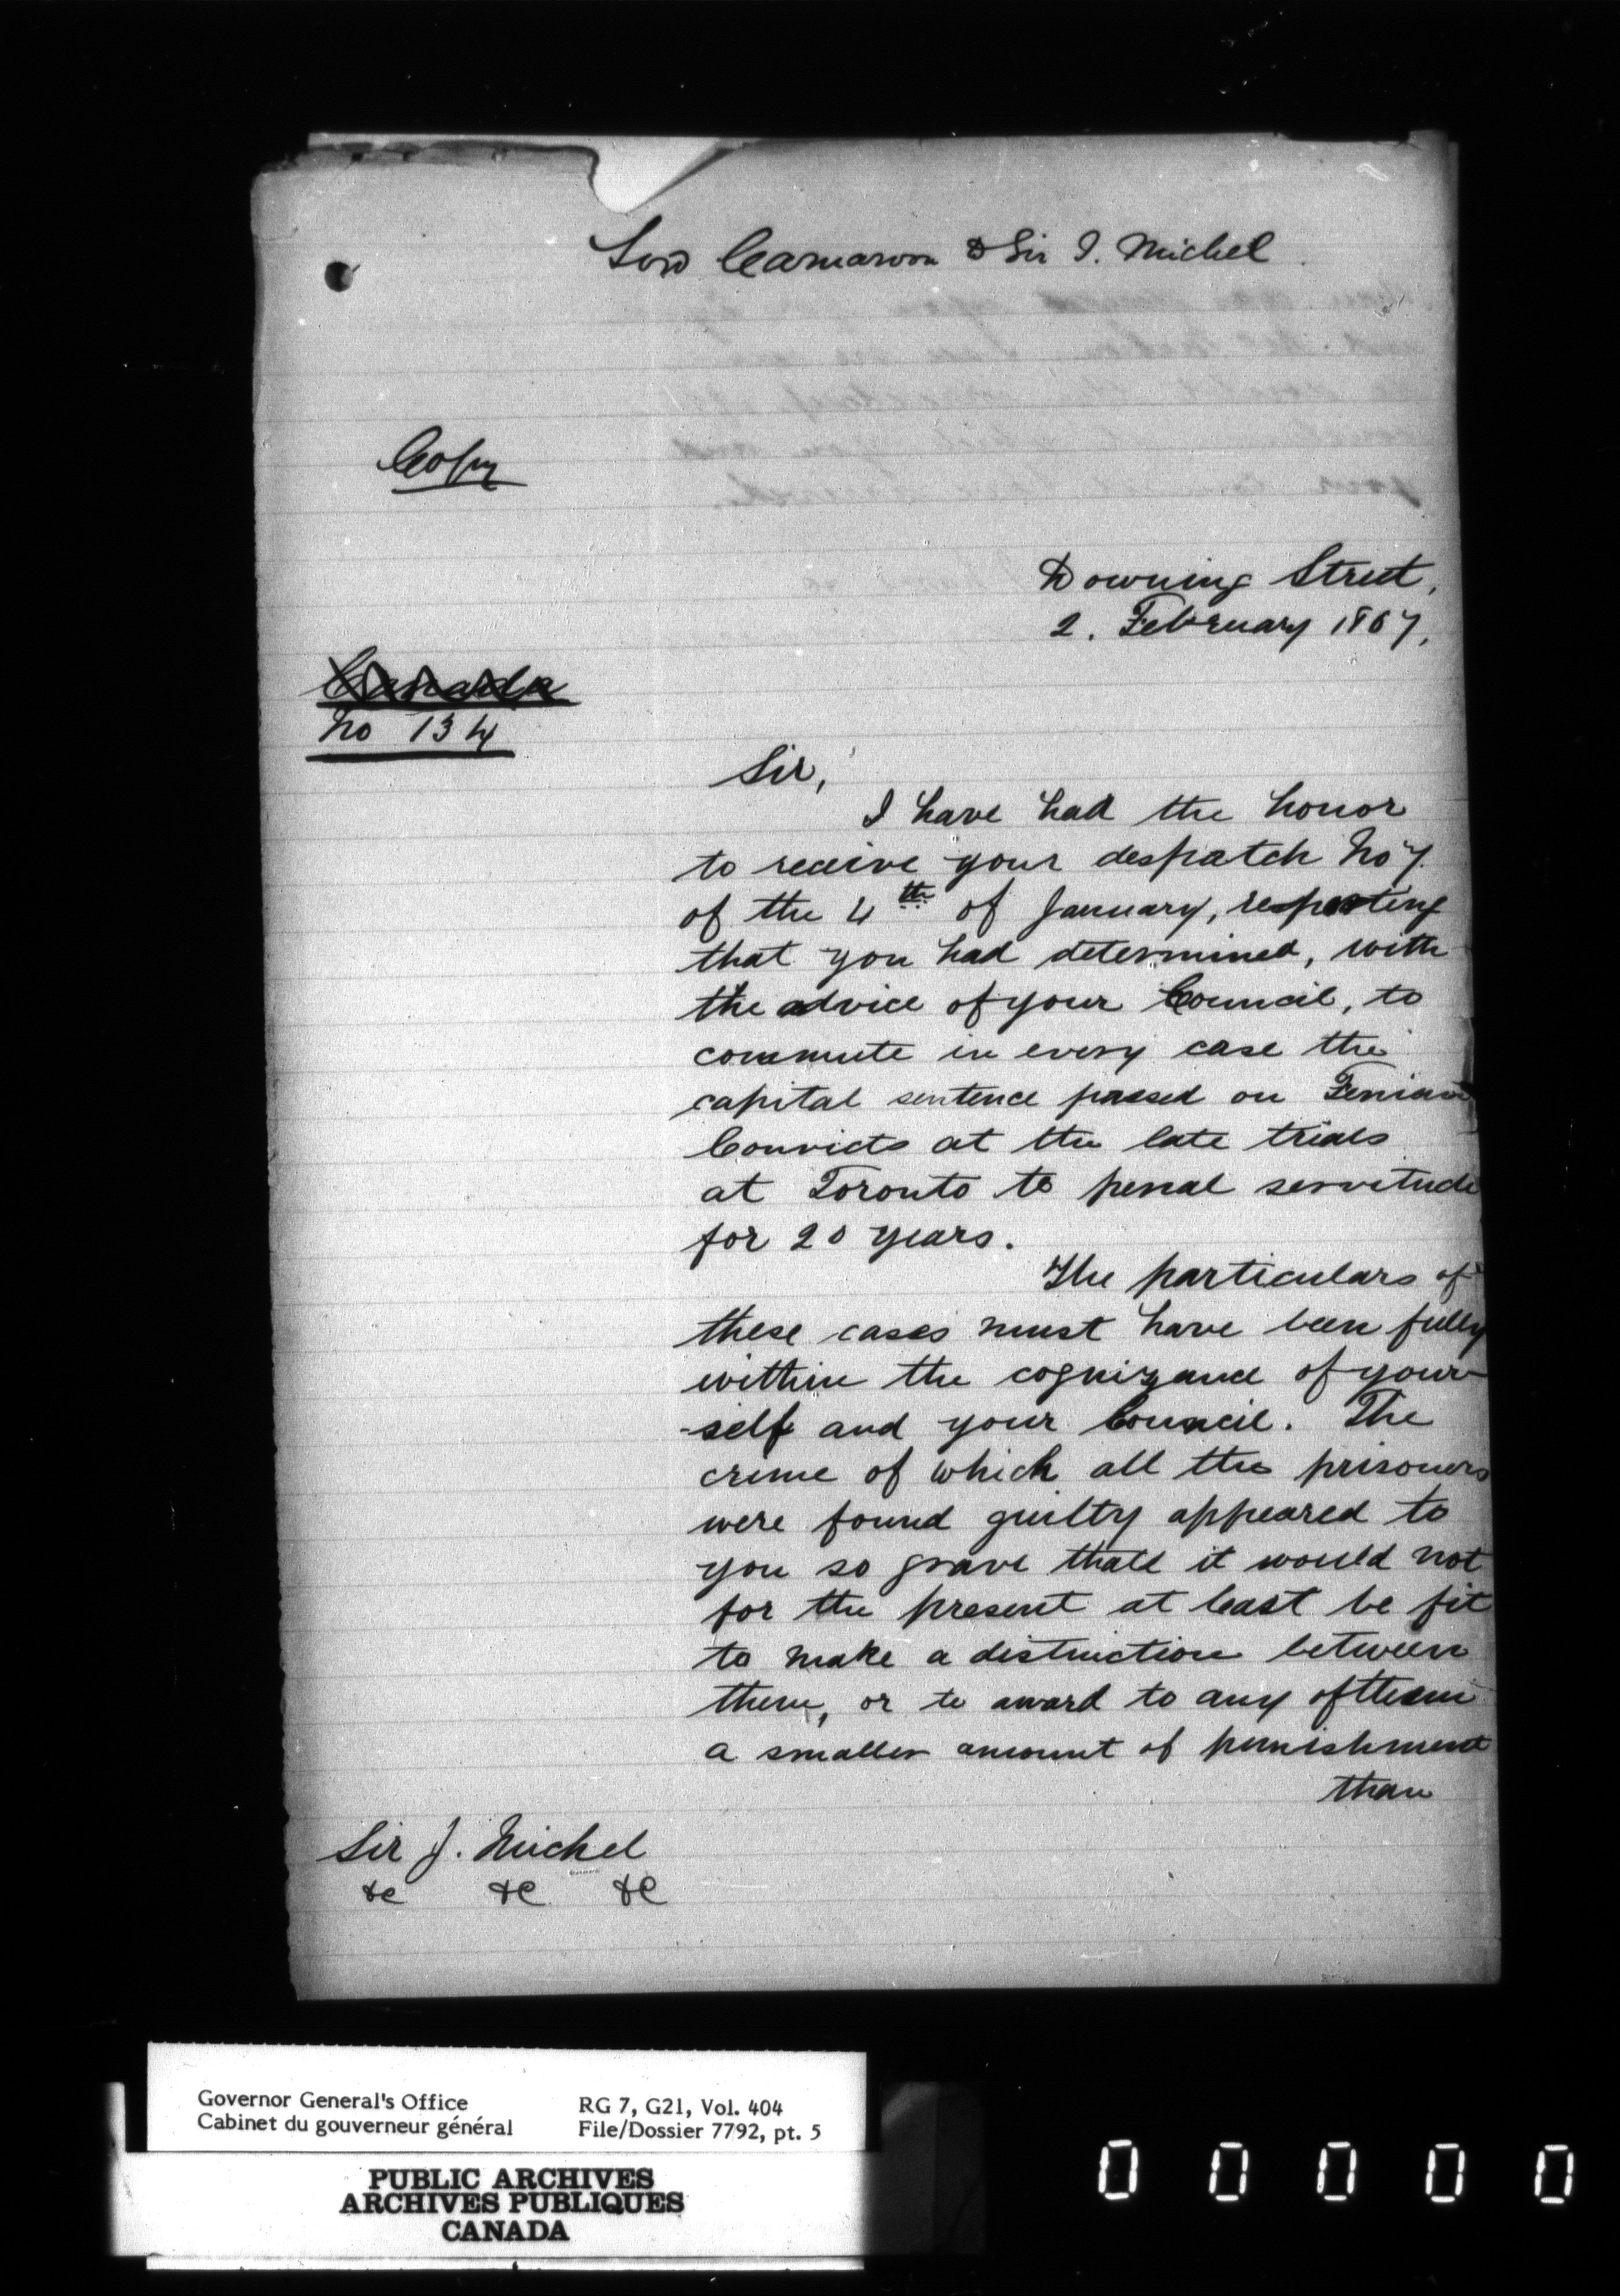 Lord Carnarvon to Sir J. Michel
Copy
Downing Street,
2. February 1867,
Canada
No 134
Sir,
I have had the honor
to receive your despatch No 7.
of the 4th of January, reporting
that you had determined, with
the advice of your Council, to
commute in every case the
capital sentence passed on Fenian
Convicts at the late trials
at Toronto to penal servitude
for 20 years.
The particulars of
these cases must have been fully
within the cognizance of your-
-self and your Council. The
crime of which all the prisoners
were found guilty appeared to
you so grave that it would not
for the present at least be fit
to make a distinction between
them, or to award to any of them
a smaller amount of punishment
than
Sir J. Michel
&c &c &c
Governor General's Office
Cabinet du gouverneur général
RG 7, G21, Vol. 404
File/Dossier 7792, pt. 5
PUBLIC ARCHIVES
ARCHIVES PUBLIQUES
CANADA
0 0 0 0 0